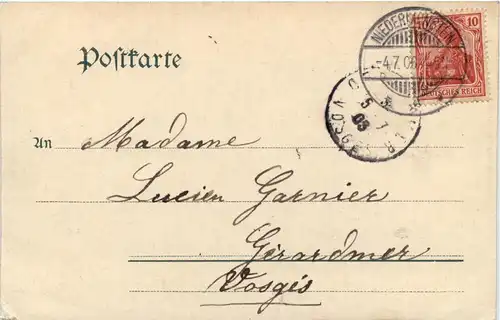 Postkarte
NIEDERLAHNSTEIN
-4.7.06
10
DEUTSCHES REICH
5 7
An Madame
Lucien Garnier
Gérardmer
Vosges